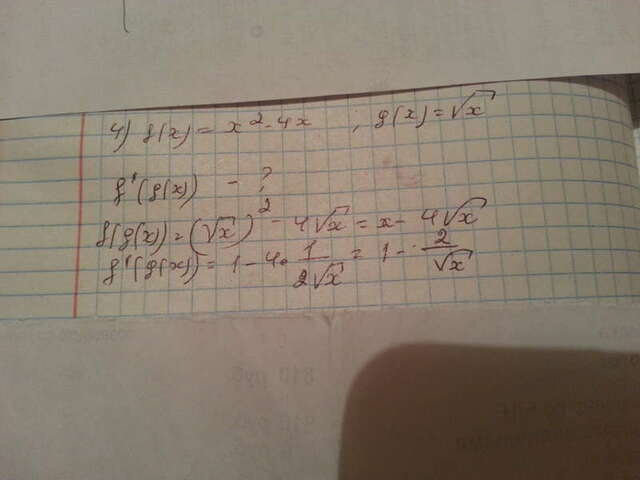 4) f(x) = x² - 4x ; g(x) = √x
f'(g(x)) - ?
f(g(x)) = (√x)² - 4√x = x - 4√x
f'(g(x)) = 1 - 4 · 1/(2√x) = 1 - 2/√x